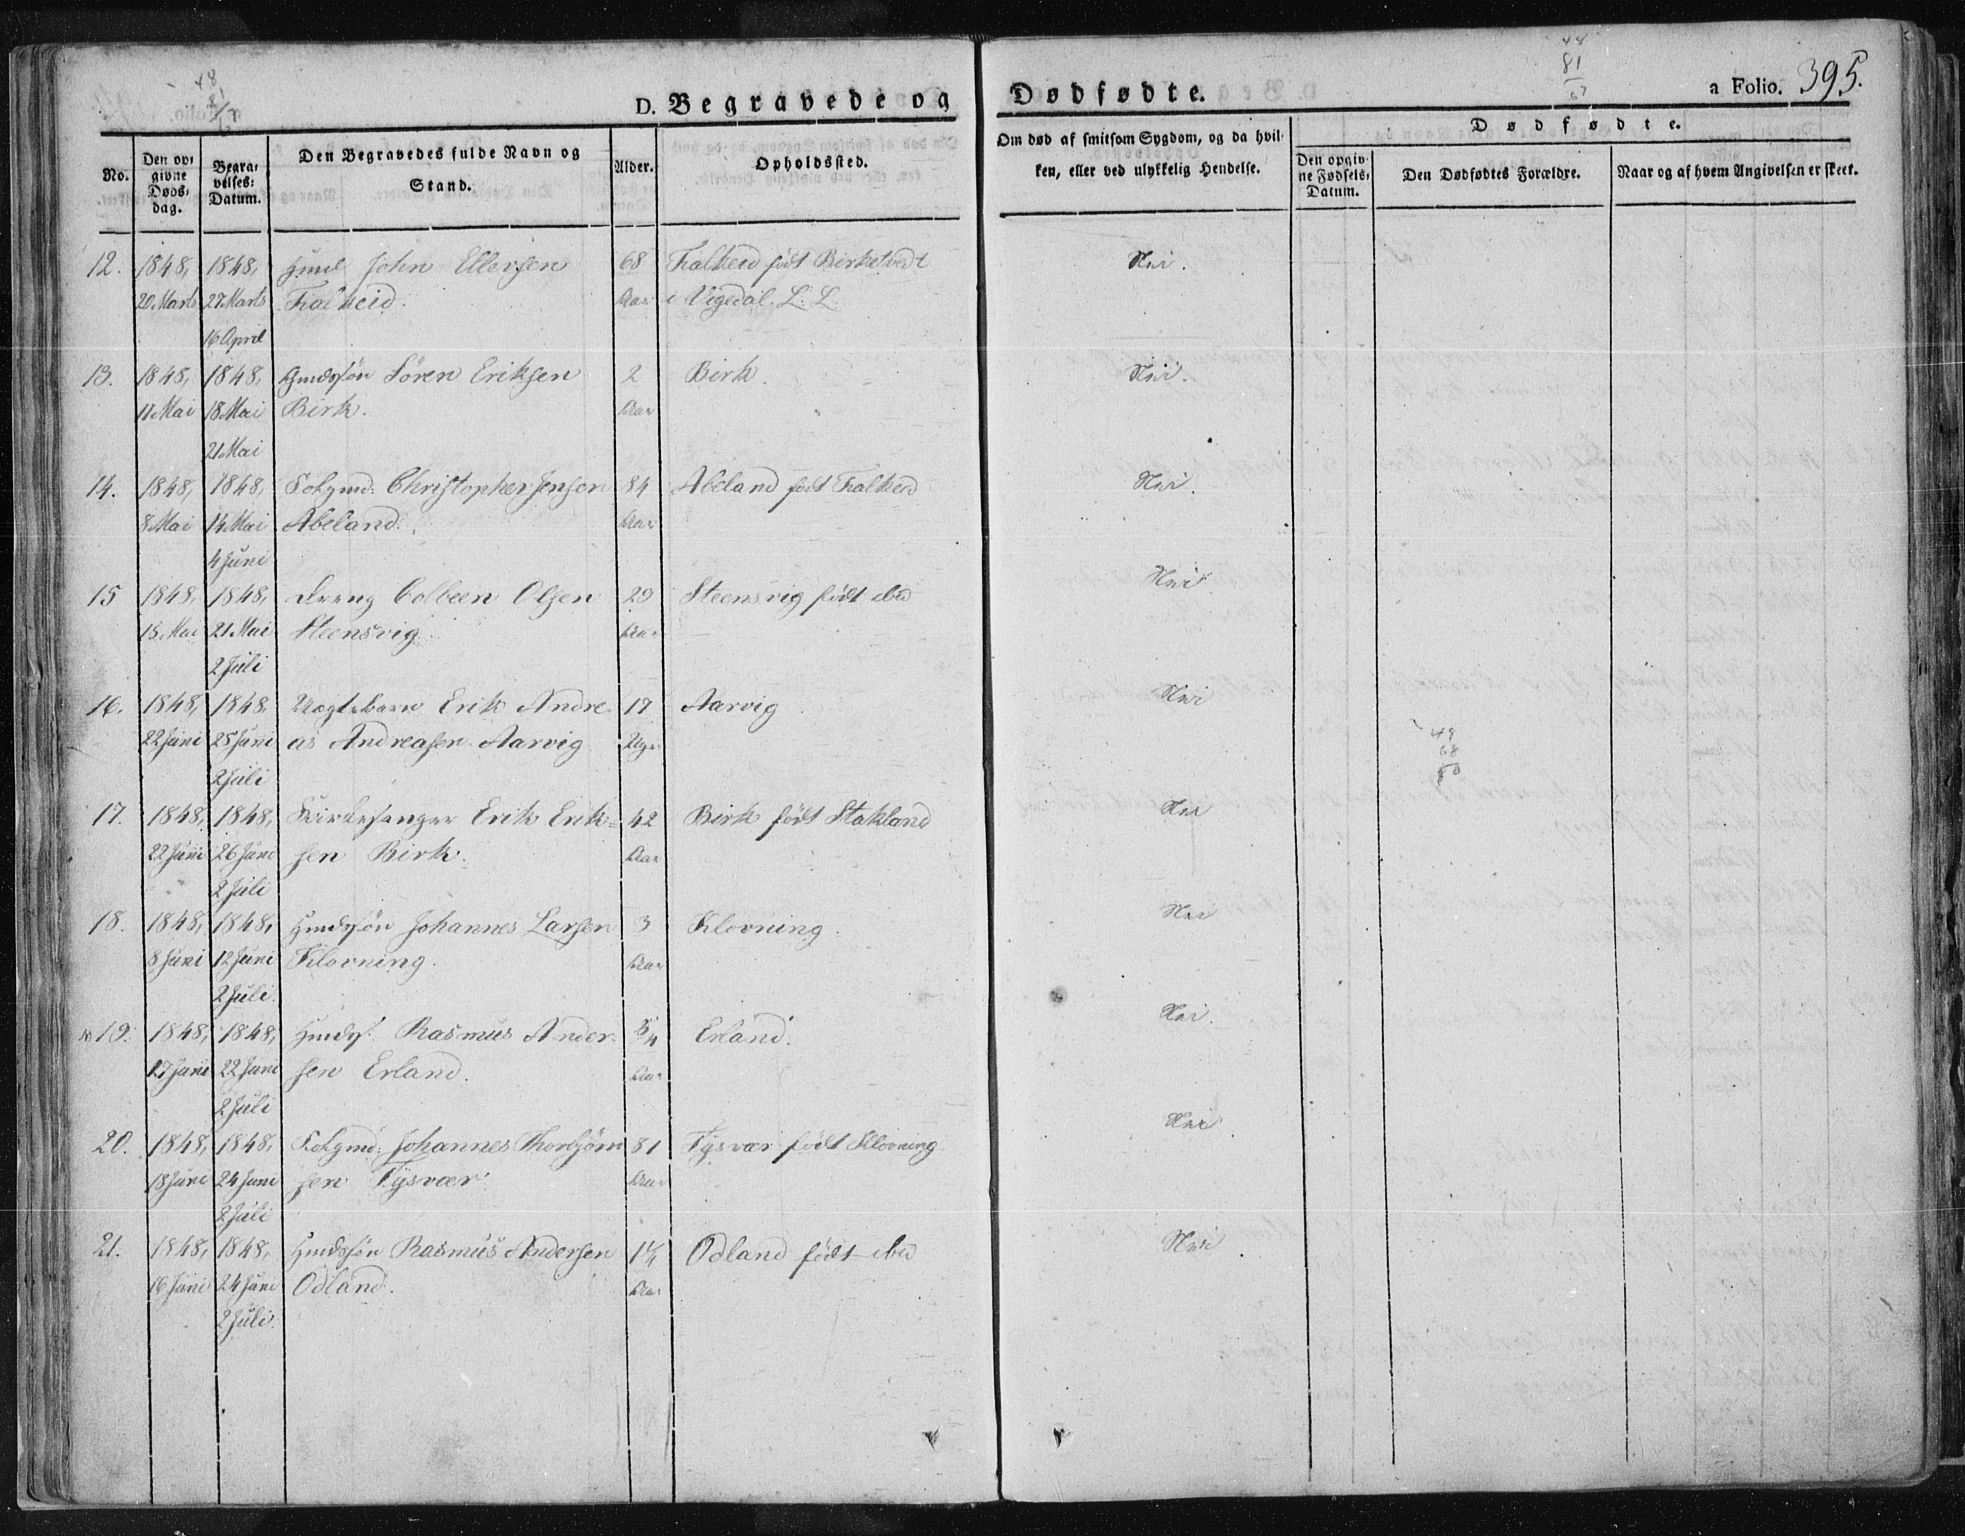 D. Begravede og Dødfødte. a Folio. 395.
No.
Den op-
givne
Døds-
dag.
Begra-
velses-
Datum.
Den Begravedes fulde Navn og
Stand.
Alder.
Opholdssted.
Om død af smitsom Sygdom, og da hvil-
ken, eller ved ulykkelig Hendelse.
Dødfødte.
Den opgiv-
ne Fødsels-
Datum.
Den Dødfødtes Forældre.
Naar og af hvem Angivelsen er skeet.
12. 1848, 1848, John Ellersen 68 Falkeid født Birketvedt Nei.
20 Marts 27 Marts Falkeid. Aar i Vigedal. L. L.
16 April
13. 1848, 1848, Gmdssön Sören Eriksen 2 Birk. Nei.
11 Mai 18 Mai Birk. Aar
21 Mai
14. 1848, 1848, Folgmd: Christopher Jensen 84 Abeland født Falkeid Nei.
8 Mai 14 Mai Abeland. Aar
4 Juni
15 1848, 1848, Dreng Colbeen Olsen 29 Steensvig født ibid Nei
15 Mai 21 Mai Steensvig. Aar
2 Juli
16. 1848, 1848 Uægtebarn Erik Andre 17 Aarvig Nei
22 Juni 25 Juni as Andreasen Aarvig Uger
2 Juli
17. 1848, 1848, Kirkesanger Erik Erik- 42 Birk født Stakland Nei
22 Juni 26 Juni sen Birk. Aar
2 Juli
18. 1848, 1848, Hmdssön Johannes Larsen 3 Klovning. Nei
8 Juni 12 Juni Klovning. Aar
2 Juli.
19. 1848, 1848, Hmdss. Rasmus Ander- 5/4 Erland. Nei.
17 Juni 22 Juni sen Erland. Aar
2 Juli
20. 1848, 1848, Folgmd: Johannes Thorbjörn 81 Tysvær født Klovning Nei
18 Juni 24 Juni sen Tysvær Aar
2 Juli
21. 1848, 1848, Hmdssön Rasmus Andersen 1¼ Odland født ibid Nei.
16 Juni 24 Juni Odland. Aar
2 Juli.